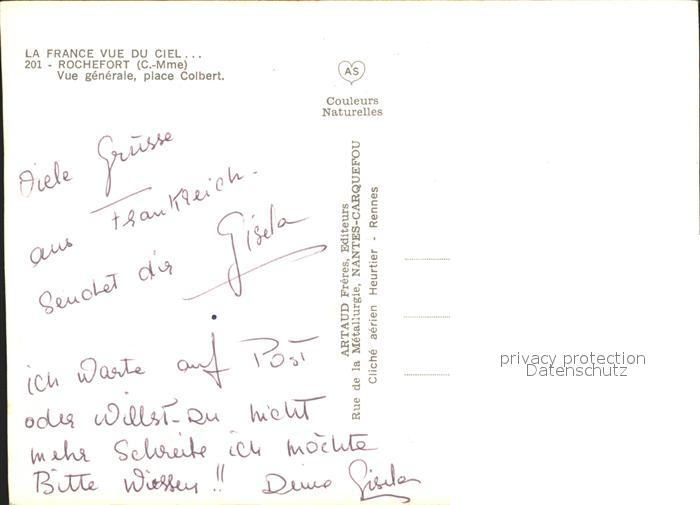 LA FRANCE VUE DU CIEL...
201 - ROCHEFORT (C.-Mme)
Vue générale, place Colbert.
AS
Couleurs
Naturelles
Viele Grüsse
aus Frankreich.
Sendet dir Gisela
ich warte auf Post
oder willst-Du nicht
mehr Schreibe ich möchte
Bitte Wiessen!! Deine Gisela
ARTAUD Frères, Editeurs
Rue de la Métallurgie, NANTES-CARQUEFOU
Cliché aérien Heurtier - Rennes
privacy protection
Datenschutz